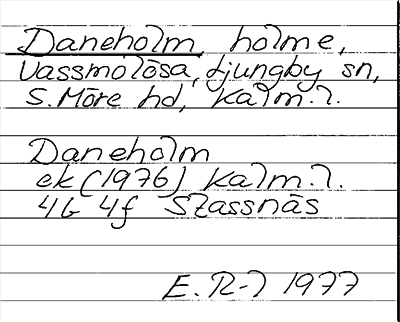 Daneholm, holme,
Vassmolösa, Ljungby sn,
S. Möre hd, Kalm. l.
Daneholm
ek (1976) Kalm. l.
4G 4f Stassnäs
E. R-l 1977